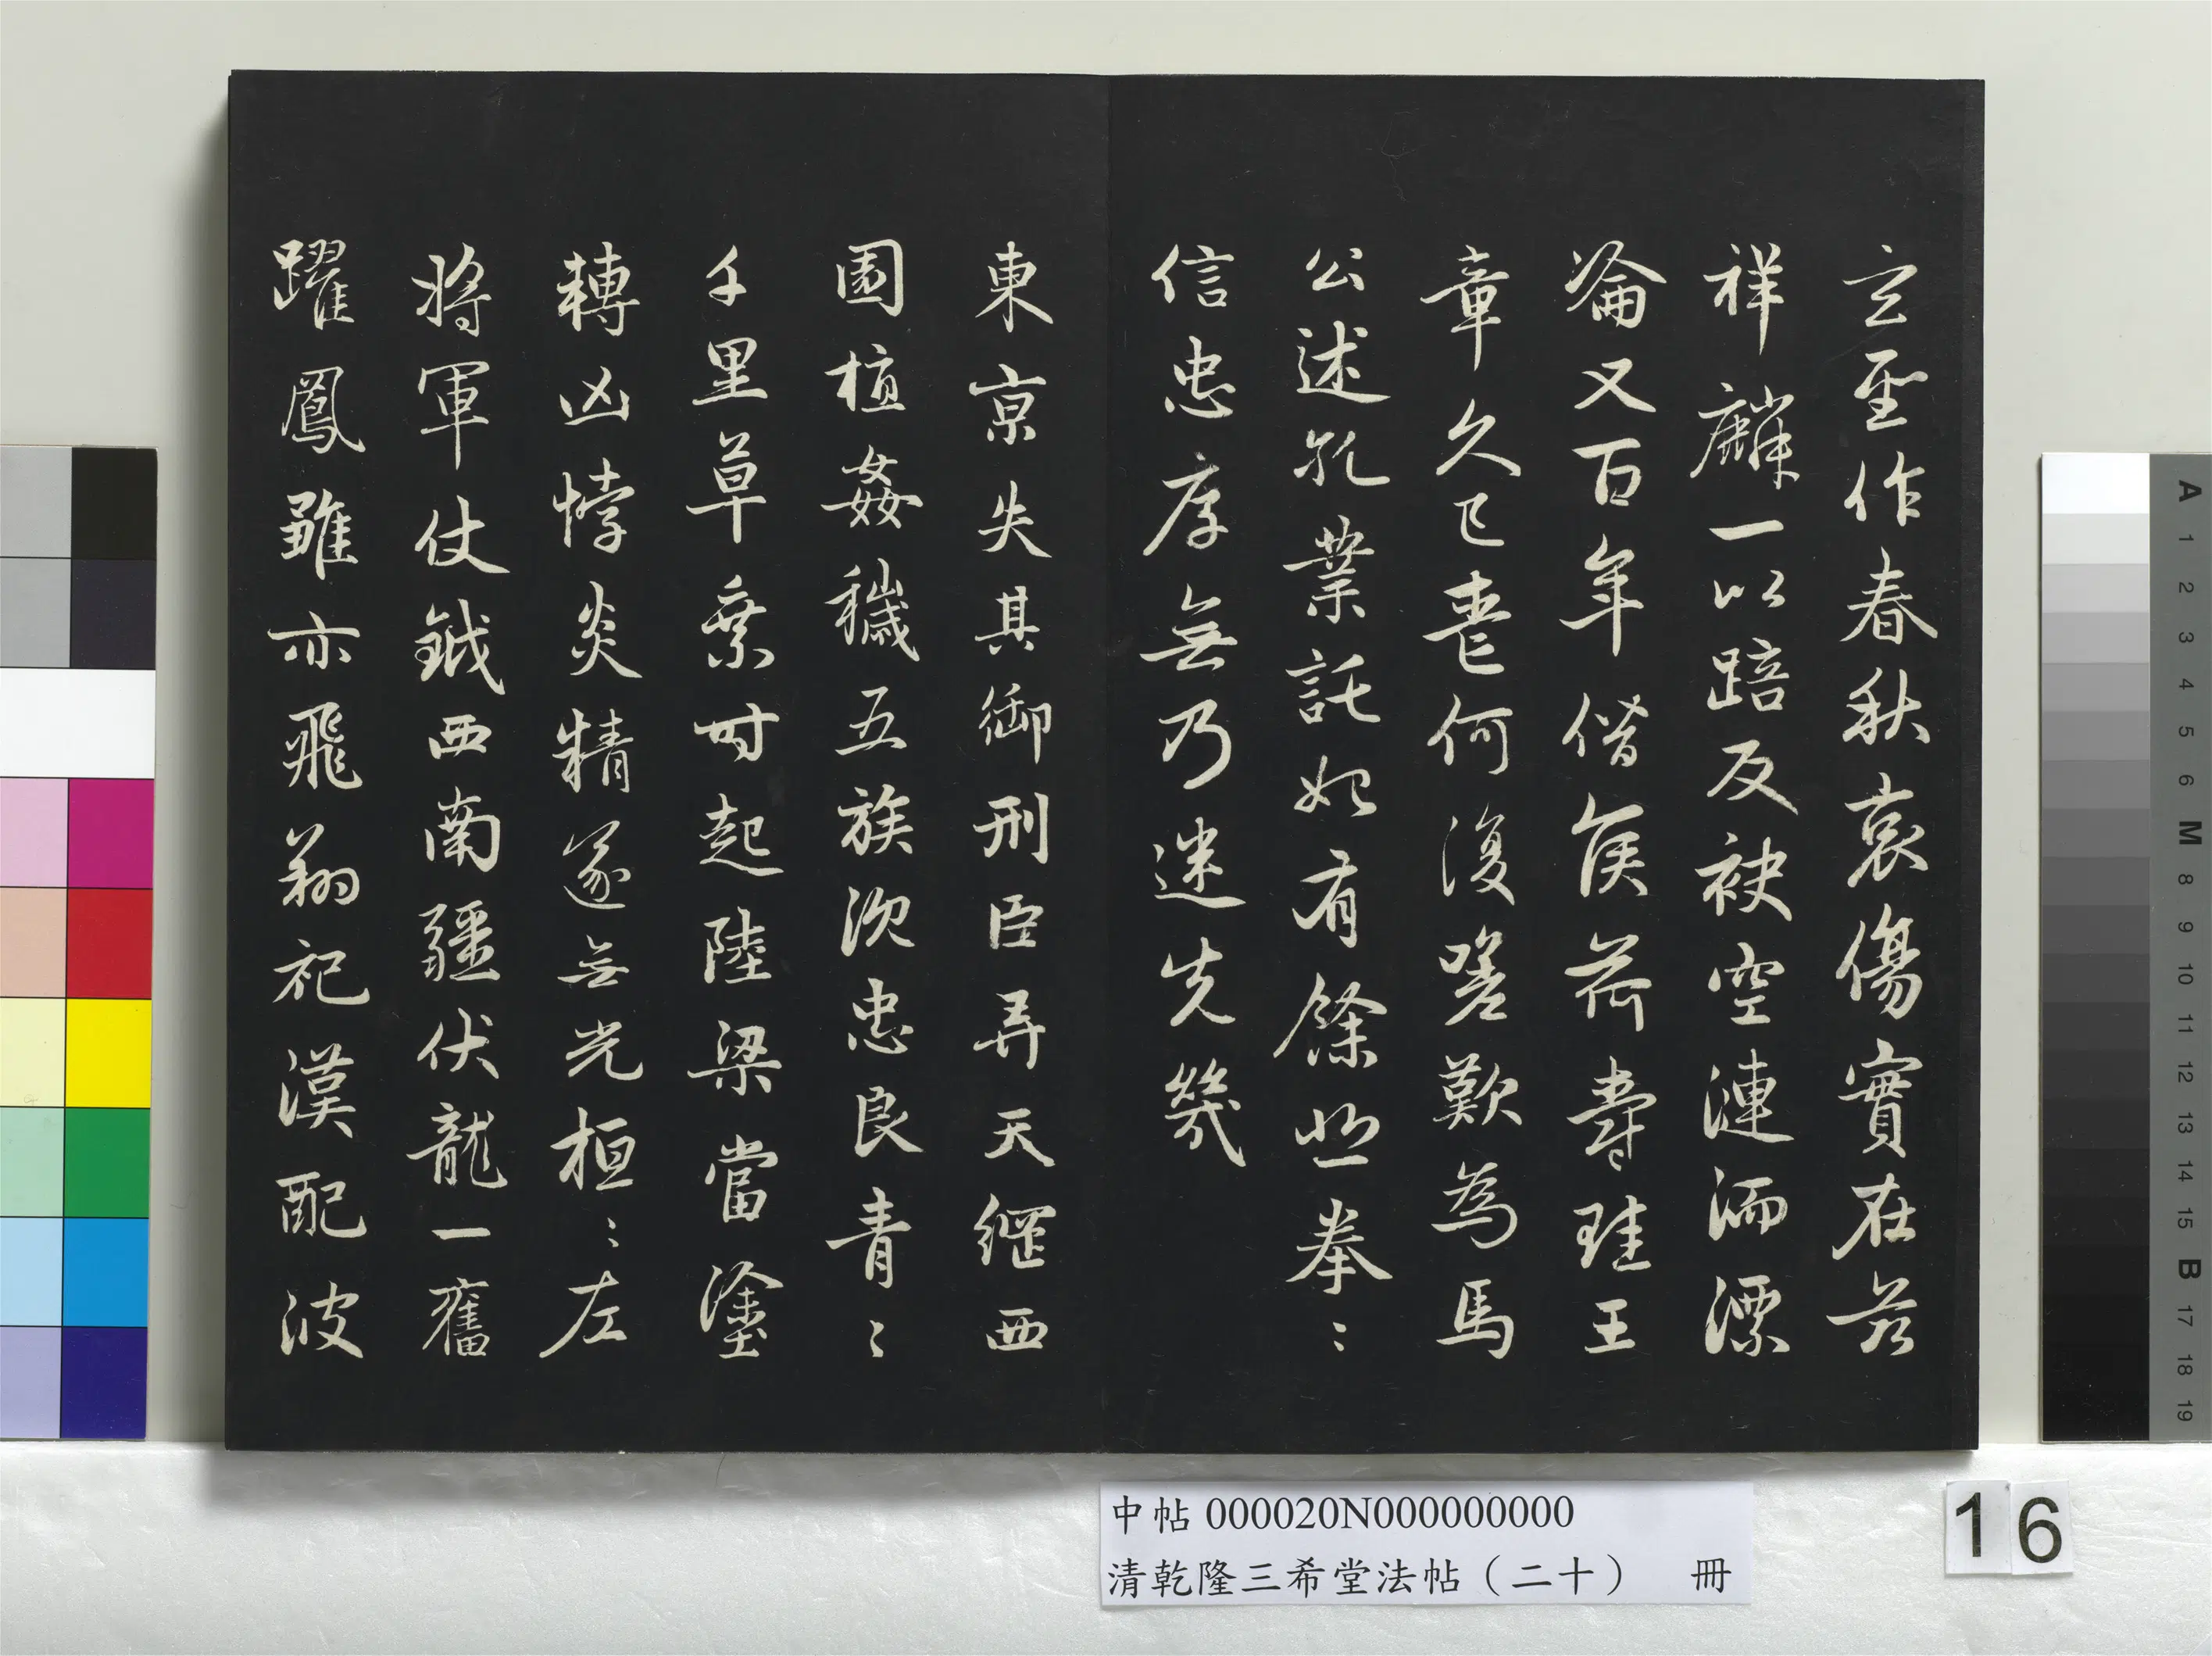 玄聖作春秋哀傷實在茲
祥麟一以踣反袂空漣洏漂
淪又百年僭侯荷爵珪王
章久已喪何復嗟歎為馬
公述孔業託始有餘悲拳〻
信忠厚無乃迷先幾
東京失其御刑臣弄天綱西
園植姦穢五族沉忠良青〻
千里草乗時起陸梁當塗
轉凶悖炎精遂無光桓〻左
將軍仗鉞西南疆伏龍一奮
躍鳳雛亦飛翔祀漢配彼
中帖 000020N000000000
清乾隆三希堂法帖（二十） 冊
16
A 1 2 3 4 5 6 M 8 9 10 11 12 13 14 15 B 17 18 19